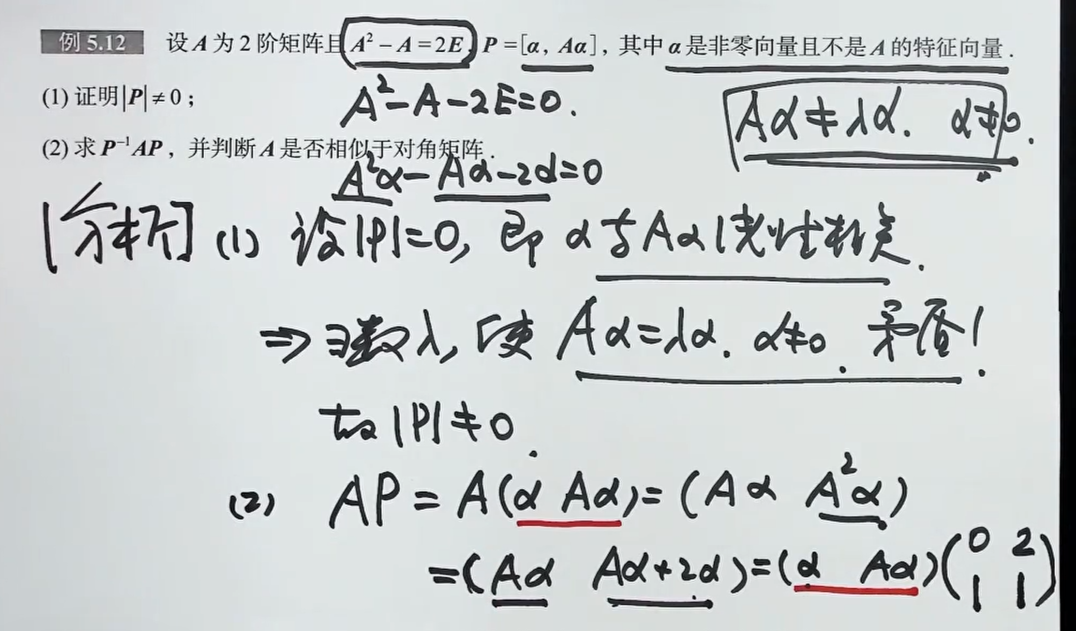 例 5.12 设 A 为 2 阶矩阵且 A² - A = 2E, P = [α, Aα], 其中 α 是非零向量且不是 A 的特征向量.
(1) 证明 |P| ≠ 0;
A² - A - 2E = 0.
Aα ≠ λα. α ≠ 0.
(2) 求 P⁻¹AP, 并判断 A 是否相似于对角矩阵.
A²α - Aα - 2α = 0
[分析] (1) 设 |P| = 0, 即 α 与 Aα 线性相关.
⇒ ∃数 λ, 使 Aα = λα. α ≠ 0. 矛盾!
故 |P| ≠ 0.
(2) AP = A(α Aα) = (Aα A²α)
= (Aα Aα+2α) = (α Aα)(0 2
1 1)